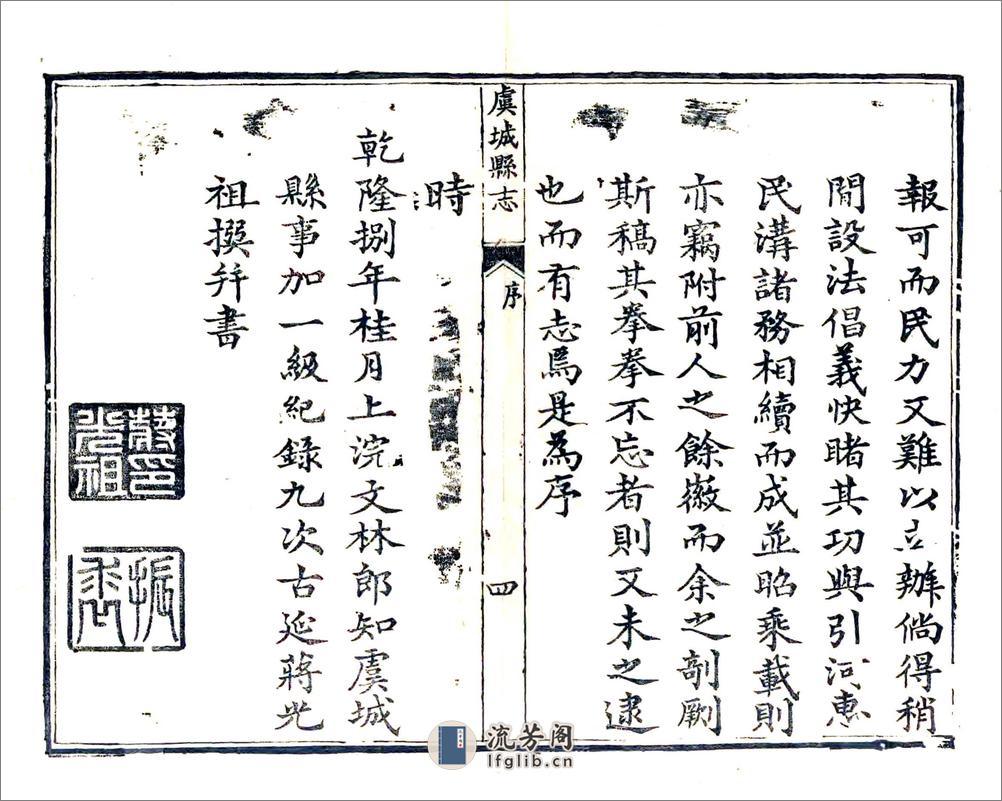 報可而民力又難以立辦倘得稍
間設法倡義快睹其功與引河惠
民溝諸務相續而成並昭乘載則
亦竊附前人之餘薇而余之剞劂
斯稿其拳拳不忘者則又未之逮
也而有志焉是為序
虞城縣志
序
四
時
乾隆捌年桂月上浣文林郎知虞城
縣事加一級紀錄九次古延蔣光
祖撰并書
蔣印光祖
振裘
流芳阁
lfglib.cn